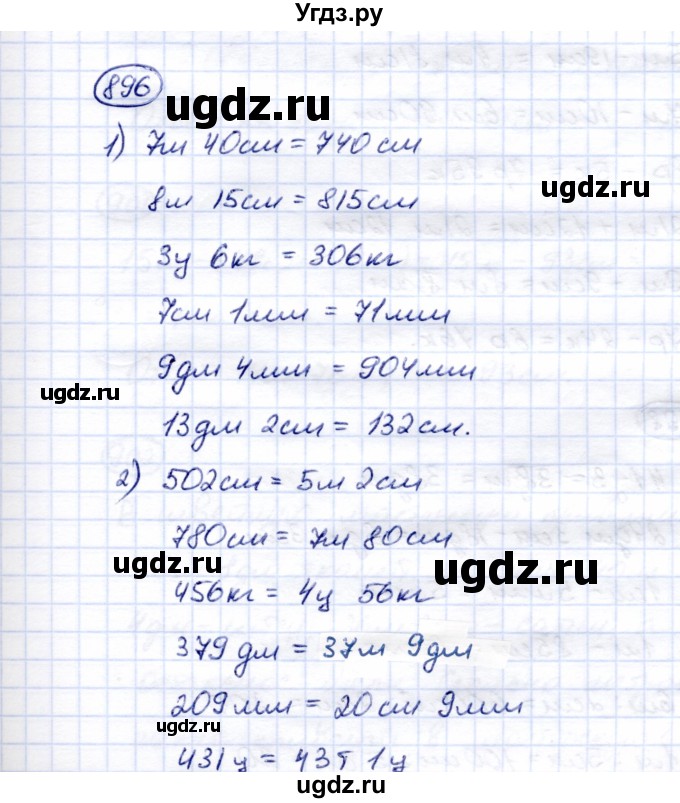 Угдз.ру
896
ugdz.ru
1) 7м 40см = 740см
ugdz.ru
8м 15см = 815см
3ц 6кг = 306кг
7см 1мм = 71мм
9дм 4мм = 904мм
ugdz.ru
ugdz.ru
13дм 2см = 132см.
2) 502см = 5м 2см
780см = 7м 80см
ugdz.ru
ugdz.ru
456кг = 4ц 56кг
379дм = 37м 9дм
209мм = 20см 9мм
ugdz.ru
ugdz.ru
431ц = 43т 1ц
ugdz.ru